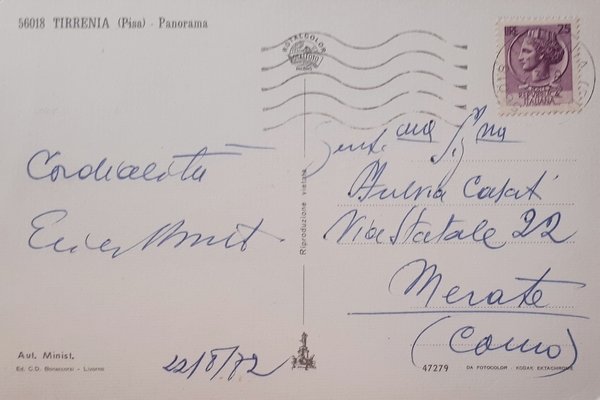 56018 TIRRENIA (Pisa) - Panorama
ROTALCOLOR
LIRE 25
REPUBBLICA
ITALIANA
Cordialità
Gent.ma Sig.na
Fulvia Casati
Via Statale 22
Merate
(Como)
Riproduzione vietata
Aut. Minist.
Ed. C.D. Bonaccorsi - Livorno
22/8/72
47279
DA FOTOCOLOR - KODAK EKTACHROME